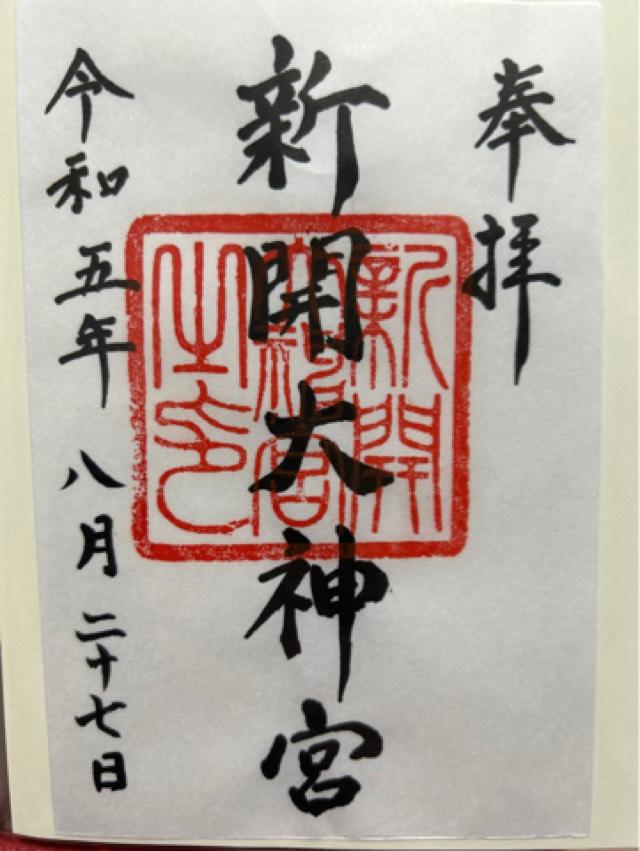 奉拝
新開大神宮
新開
大神宮
之印
令和五年八月二十七日